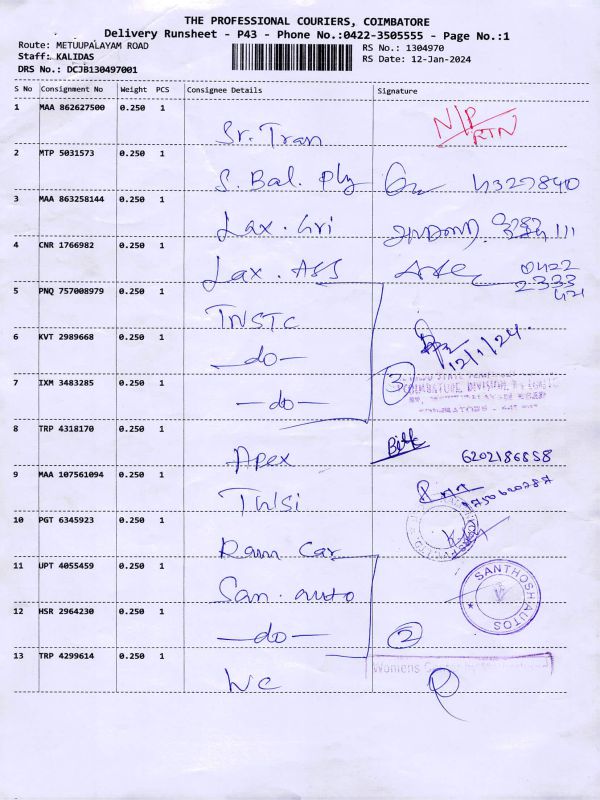 THE PROFESSIONAL COURIERS, COIMBATORE
Delivery Runsheet - P43 - Phone No.:0422-3505555 - Page No.:1
Route: METUUPALAYAM ROAD
RS No.: 1304970
Staff: KALIDAS
RS Date: 12-Jan-2024
DRS No.: DCJB130497001
S No Consignment No Weight PCS Consignee Details Signature
1 MAA 862627500 0.250 1
Sr. Tran N/P RTN
2 MTP 5031573 0.250 1
S. Bal. Ply 4327840
3 MAA 863258144 0.250 1
Lax. Gri
4 CNR 1766982 0.250 1
Lax. ASS 0422
2333
5 PNQ 757008979 0.250 1
TNSTC
6 KVT 2989668 0.250 1
-do- 12/1/24.
7 IXM 3483285 0.250 1
-do- 3
COIMBATORE DIVISION
8 TRP 4318170 0.250 1
Apex 6202186858
9 MAA 107561094 0.250 1
TWSi
10 PGT 6345923 0.250 1
Ram Car
11 UPT 4055459 0.250 1
San. auto
SANTHOSH AUTOS
12 HSR 2964230 0.250 1
-do- 2
13 TRP 4299614 0.250 1
Womens
WC